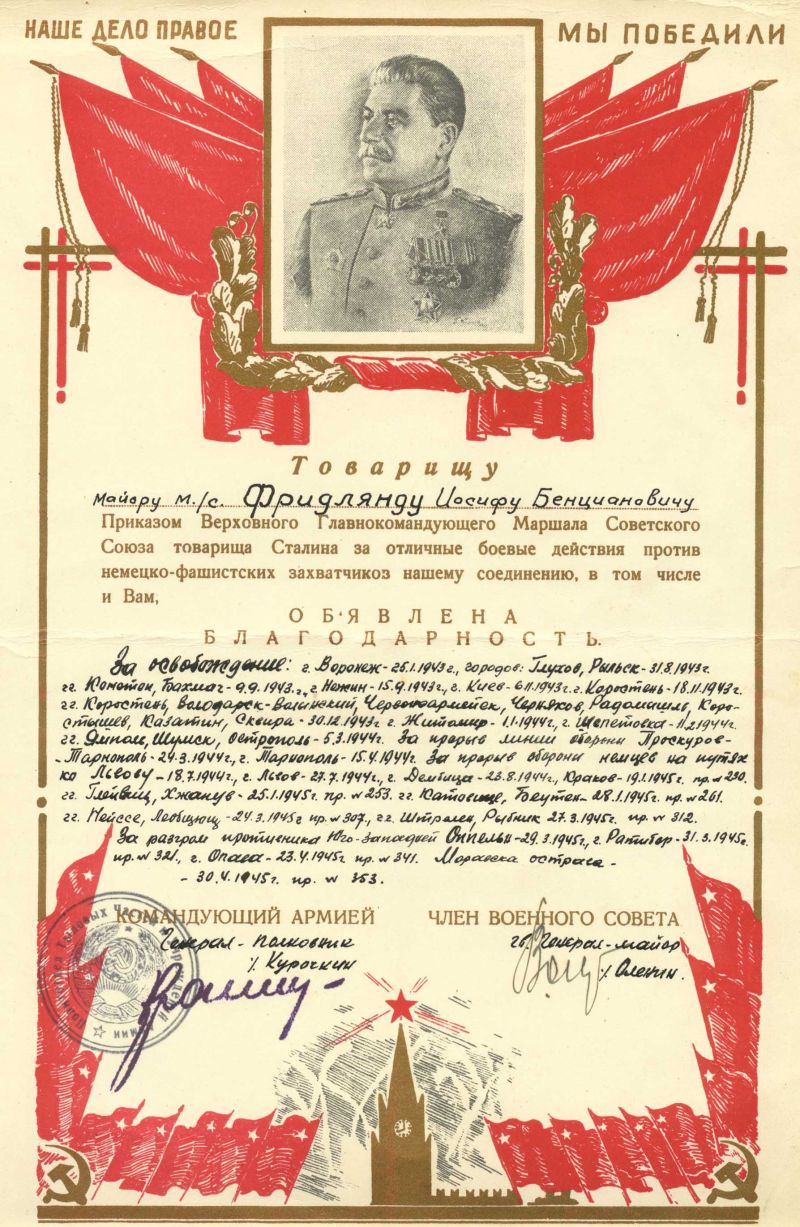 НАШЕ ДЕЛО ПРАВОЕ
МЫ ПОБЕДИЛИ
Товарищу
майору м./с. Фридлянду Иосифу Бенциановичу
Приказом Верховного Главнокомандующего Маршала Советского
Союза товарища Сталина за отличные боевые действия против
немецко-фашистских захватчикоз нашему соединению, в том числе
и Вам,
ОБ'ЯВЛЕНА
БЛАГОДАРНОСТЬ.
За освобождение: г. Воронеж - 25.1.1943 г., городов: Глухов, Рыльск - 31.8.1943г.
гг. Конотоп, Бахмач - 9.9.1943., г. Нежин - 15.9.1943г., г. Киев - 6.11.1943г. г. Коростень - 18.11.1943г.
гг. Коростень, Володарск-Волынский, Червоноармейск, Черняхов, Радомышль, Коро-
стышев, Казатин, Сквира - 30.12.1943г. г. Житомир - 1.1.1944г., г. Шепетовка - 11.2.1944г.
гг. Ямполь, Шумск, Острополь - 5.3.1944г. За прорыв линии обороны Проскуров-
-Тарнополь - 24.3.1944г., г. Тарнополь - 15.4.1944г. За прорыв обороны немцев на путях
ко Львову - 18.7.1944г., г. Львов - 27.7.1944г., г. Дембица - 23.8.1944г., Краков - 19.1.1945г. пр. № 230.
гг. Глейвиц, Хжанув - 25.1.1945г. пр. № 253. гг. Катовице, Беутен - 28.1.1945г. пр. № 261.
гг. Нейссе, Леобшющ - 24.3.1945г. пр. № 307., гг. Штрелен, Рыбник 27.3.1945г. пр. № 312.
За разгром противника Юго-Западней Оппельн - 29.3.1945г., г. Ратибор - 31.3.1945г.
пр. № 321., г. Опава - 23.4.1945г. пр. № 341. Моравска острава -
- 30.4.1945г. пр. № 353.
КОМАНДУЮЩИЙ АРМИЕЙ
ЧЛЕН ВОЕННОГО СОВЕТА
Генерал-полковник
гв. Генерал-майор
/. Курочкин
/. Оленин.